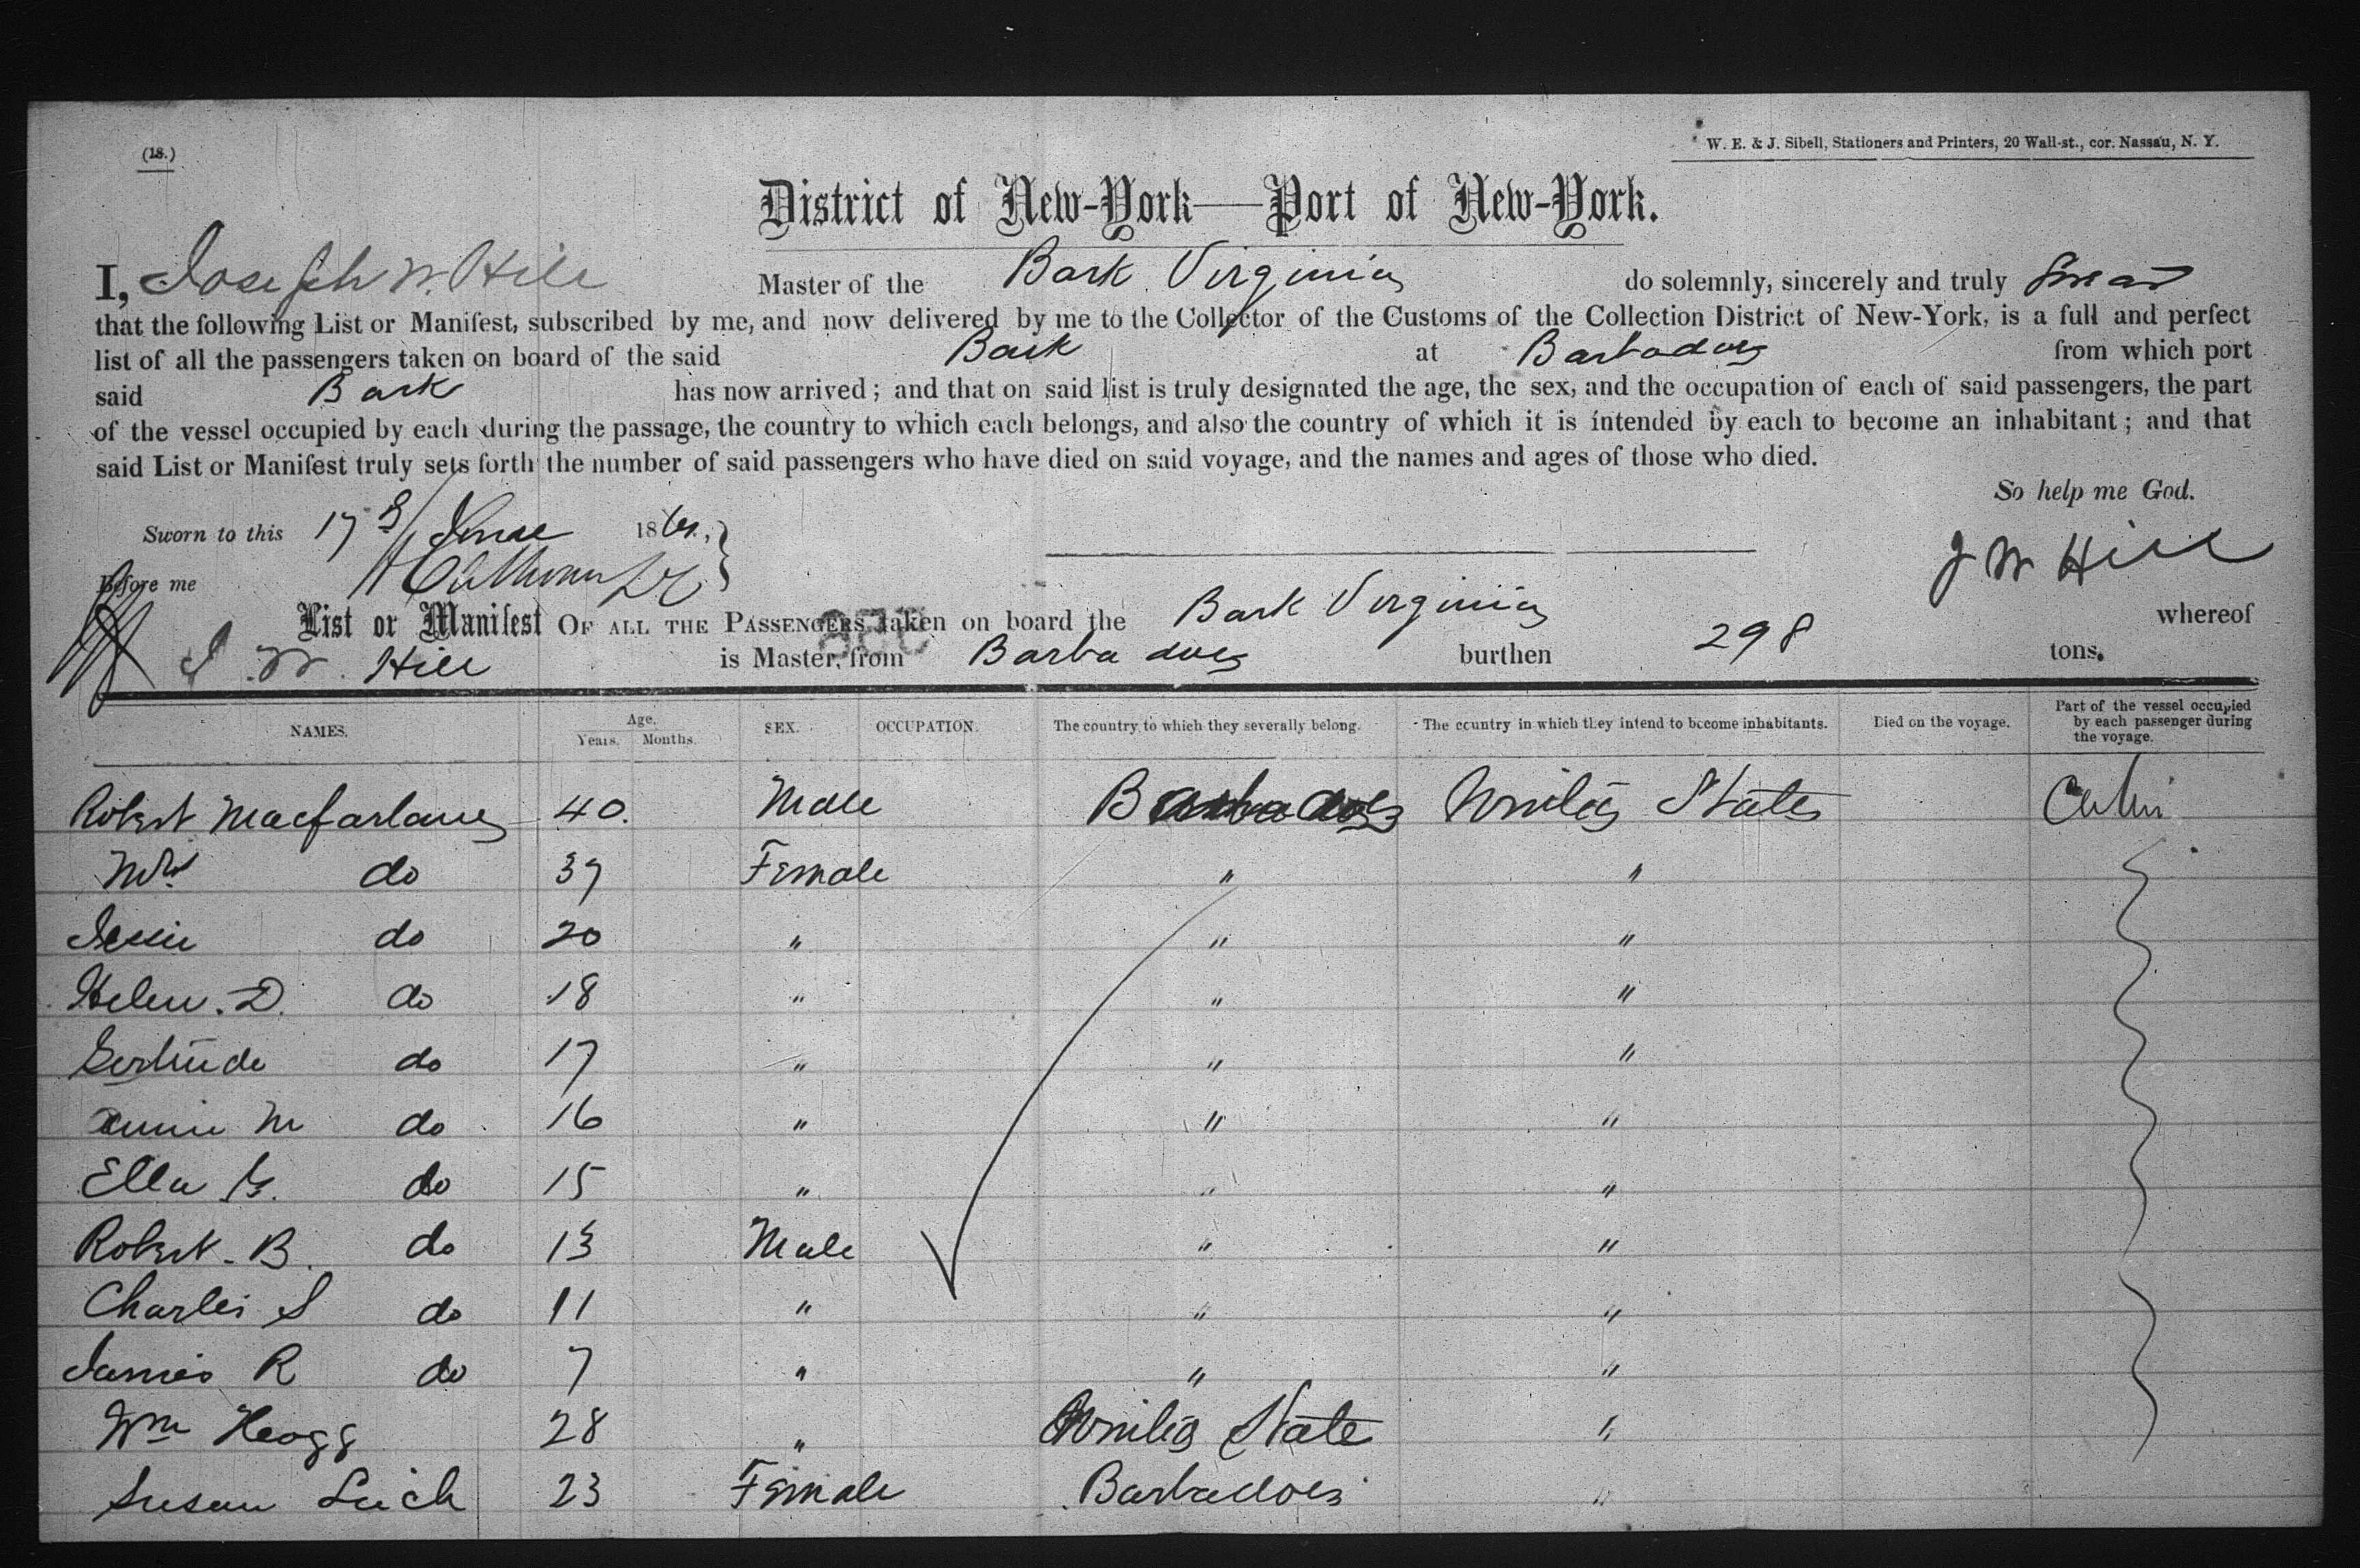 (18.)
W. E. & J. Sibell, Stationers and Printers, 20 Wall-st., cor. Nassau, N. Y.
District of New-York—Port of New-York.
I, Joseph W. Hill Master of the Bark Virginia do solemnly, sincerely and truly Swear
that the following List or Manifest, subscribed by me, and now delivered by me to the Collector of the Customs of the Collection District of New-York, is a full and perfect
list of all the passengers taken on board of the said Bark at Barbadoes from which port
said Bark has now arrived; and that on said list is truly designated the age, the sex, and the occupation of each of said passengers, the part
of the vessel occupied by each during the passage, the country to which each belongs, and also the country of which it is intended by each to become an inhabitant; and that
said List or Manifest truly sets forth the number of said passengers who have died on said voyage, and the names and ages of those who died.
So help me God.
Sworn to this 17 June 186
J W Hill
Before me
List or Manifest OF ALL THE PASSENGERS taken on board the Bark Virginia whereof
J. W. Hill is Master, from Barbadoes burthen 298 tons.
NAMES. Age. Years. Months. SEX. OCCUPATION. The country to which they severally belong. The country in which they intend to become inhabitants. Died on the voyage. Part of the vessel occupied by each passenger during the voyage.
Robert Macfarlane 40. Male Barbadoes United States Cabin
Mrs do 39 Female " "
Jessie do 20 " " "
Helen. D. do 18 " " "
Gertrude do 17 " " "
Annie M do 16 " " "
Ella G. do 15 " " "
Robert. B. do 13 Male " "
Charles S do 11 " " "
James R do 7 " " "
Wm Heogg 28 " United State "
Susan Leich 23 Female Barbadoes "